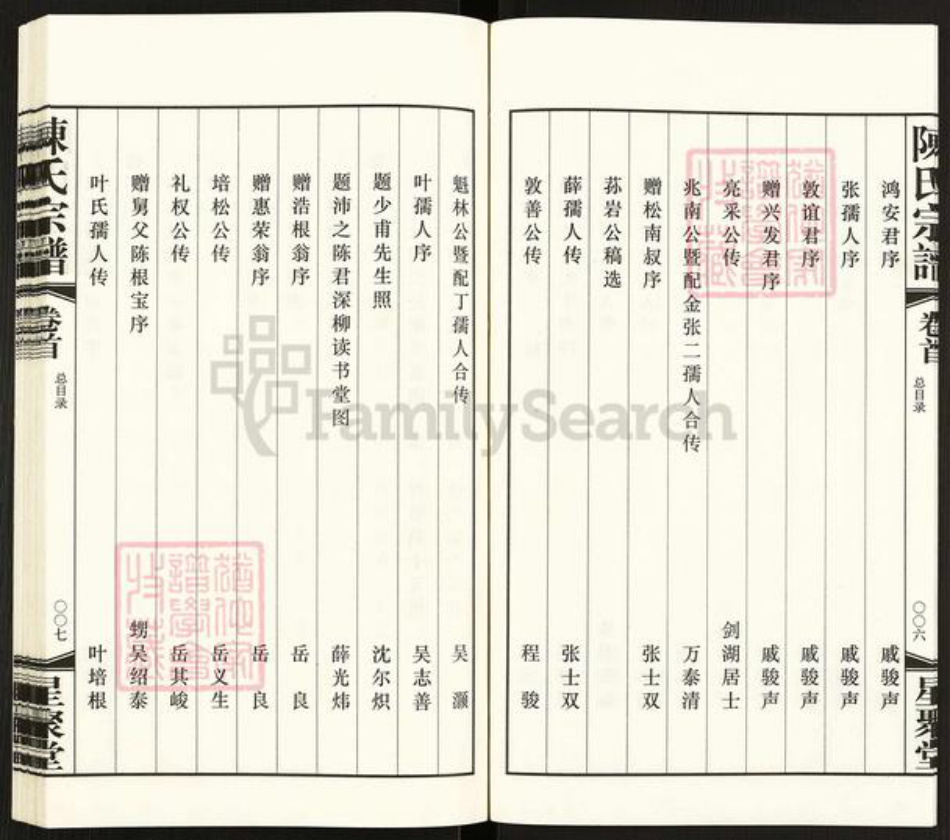 陳氏宗譜 卷首 总目录 〇〇六 星聚堂
鸿安君序 戚骏声
张孺人序 戚骏声
敦谊君序 戚骏声
赠兴发君序 戚骏声
亮采公传 剑湖居士
兆南公暨配金张二孺人合传 万泰清
赠松南叔序 张士双
荪岩公稿选
薛孺人传 张士双
敦善公传 程骏
魁林公暨配丁孺人合传 吴灏
叶孺人序 吴志善
题少甫先生照 沈尔炽
题沛之陈君深柳读书堂图 薛光炜
赠浩根翁序 岳良
赠惠荣翁序 岳良
培松公传 岳义生
礼权公传 岳其峻
赠舅父陈根宝序 甥吴绍泰
叶氏孺人传 叶培根
陳氏宗譜 卷首 总目录 〇〇七 星聚堂
FamilySearch